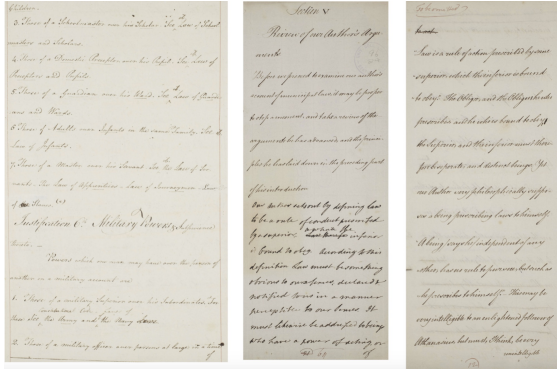 Children.
3. Those of a Schoolmaster over his Scholar. See the Law of School
masters and Scholars.
4. Those of a Domestic Preceptor over his Pupil. See Law of
Preceptors and Pupils.
5. Those of a Guardian over his Ward. See the Law of Guardi
ans and Wards.
6. Those of Adults over Infants in the same Family. See the
Law of Infants.
7. Those of a Master over his Servant. See the Law of Ser
vants. The Law of Apprentices. Law of
of
Justification Military Powers
Powers which one man may have over the person of
another in a military
1. Those of a military Superior over his Subordinate. See
the Navy and the Army Laws.
2. Those of a military officer over persons at large
of
Section V
Review of our Author's Argu
ments
Before we proceed to examine our author's
account of municipal law it may be proper
to stop a moment, and take a review of the
arguments he has advanced, and the princi
ples he has laid down in the preceding part
of his introduction
Our author sets out by defining law
to be a rule of conduct prescribed
by a superior which the inferior
is bound to obey. According to this
definition law must be something
obvious to our senses, declared &
notified to us in a manner
perceptible to our senses. It
must likewise be addressed to beings
who have a power of acting or
of
Law is a rule of action prescribed by some
superior which the inferior is bound
to obey. The Obligor, and the Obliged, he who
prescribes and he who is bound to obey
the Superior, and the inferior must there
fore be separate and distinct beings. Yet
our Author very philosophically suppo
ses a being prescribing laws to himself
A being may be independent of any
other, have no rule to pursue but such as
he prescribes to himself. This may be
very intelligible to an enlightened follower of
Athanasius but must, I think, be very
unintelligible